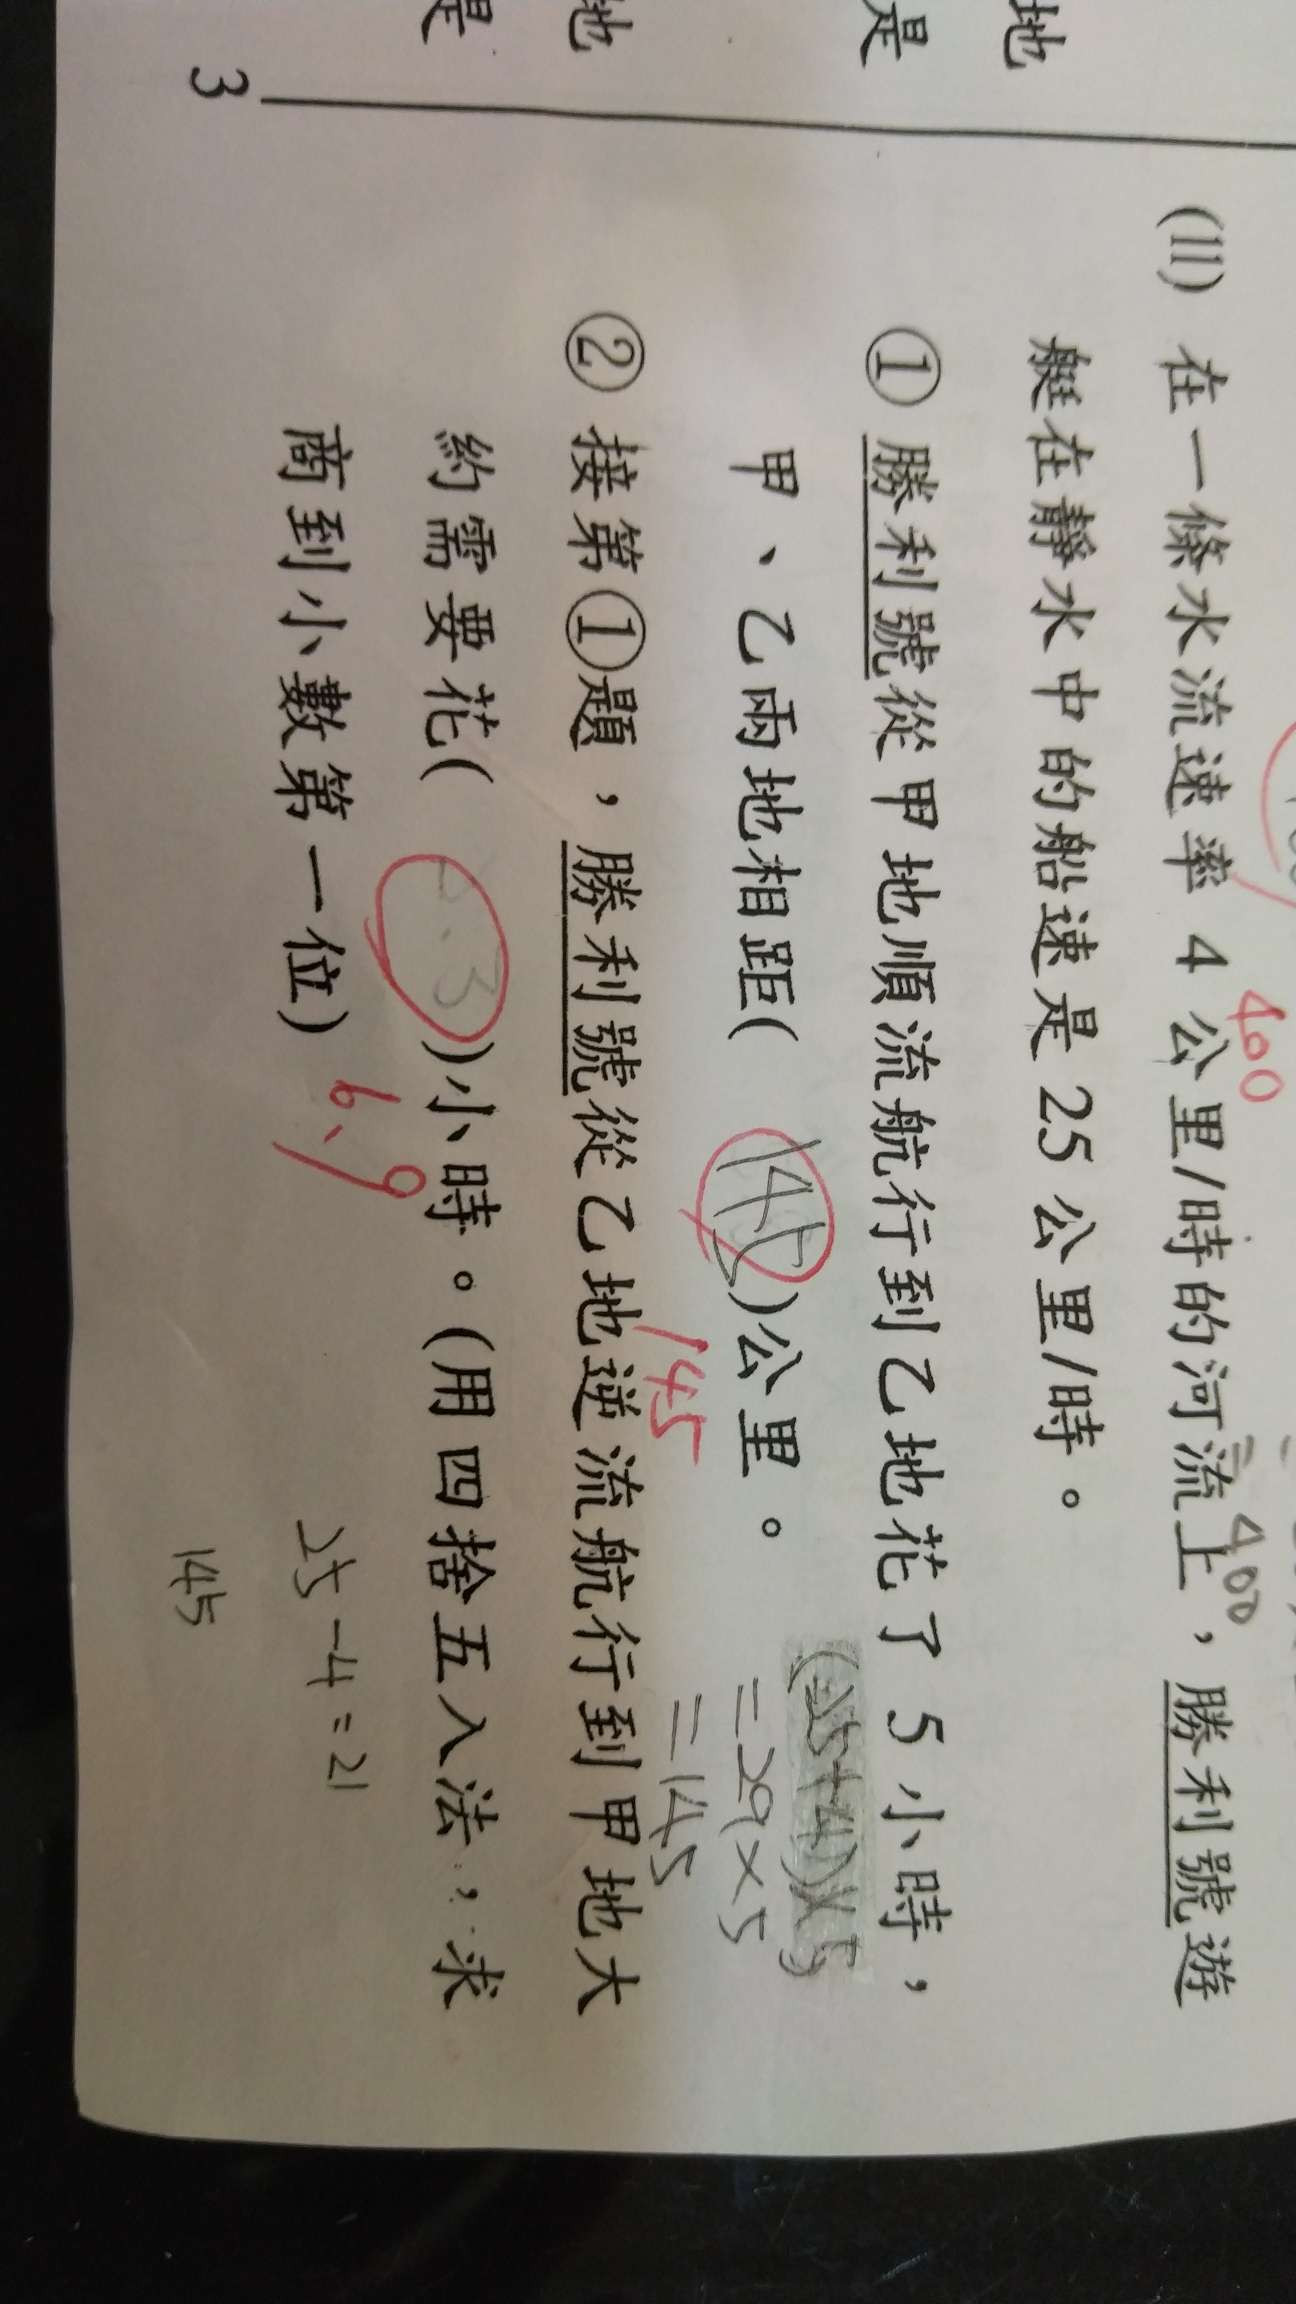 地
是
地
是
3
400
400
(11) 在一條水流速率 4 公里/時的河流上，勝利號遊
艇在靜水中的船速是 25 公里/時。
① 勝利號從甲地順流航行到乙地花了 5 小時，
(25+4)×5
甲、乙兩地相距( 145 )公里。
=29×5
145
=145
② 接第①題，勝利號從乙地逆流航行到甲地大
約需要花( )小時。(用四捨五入法，求
6.9
商到小數第一位)
25-4=21
145